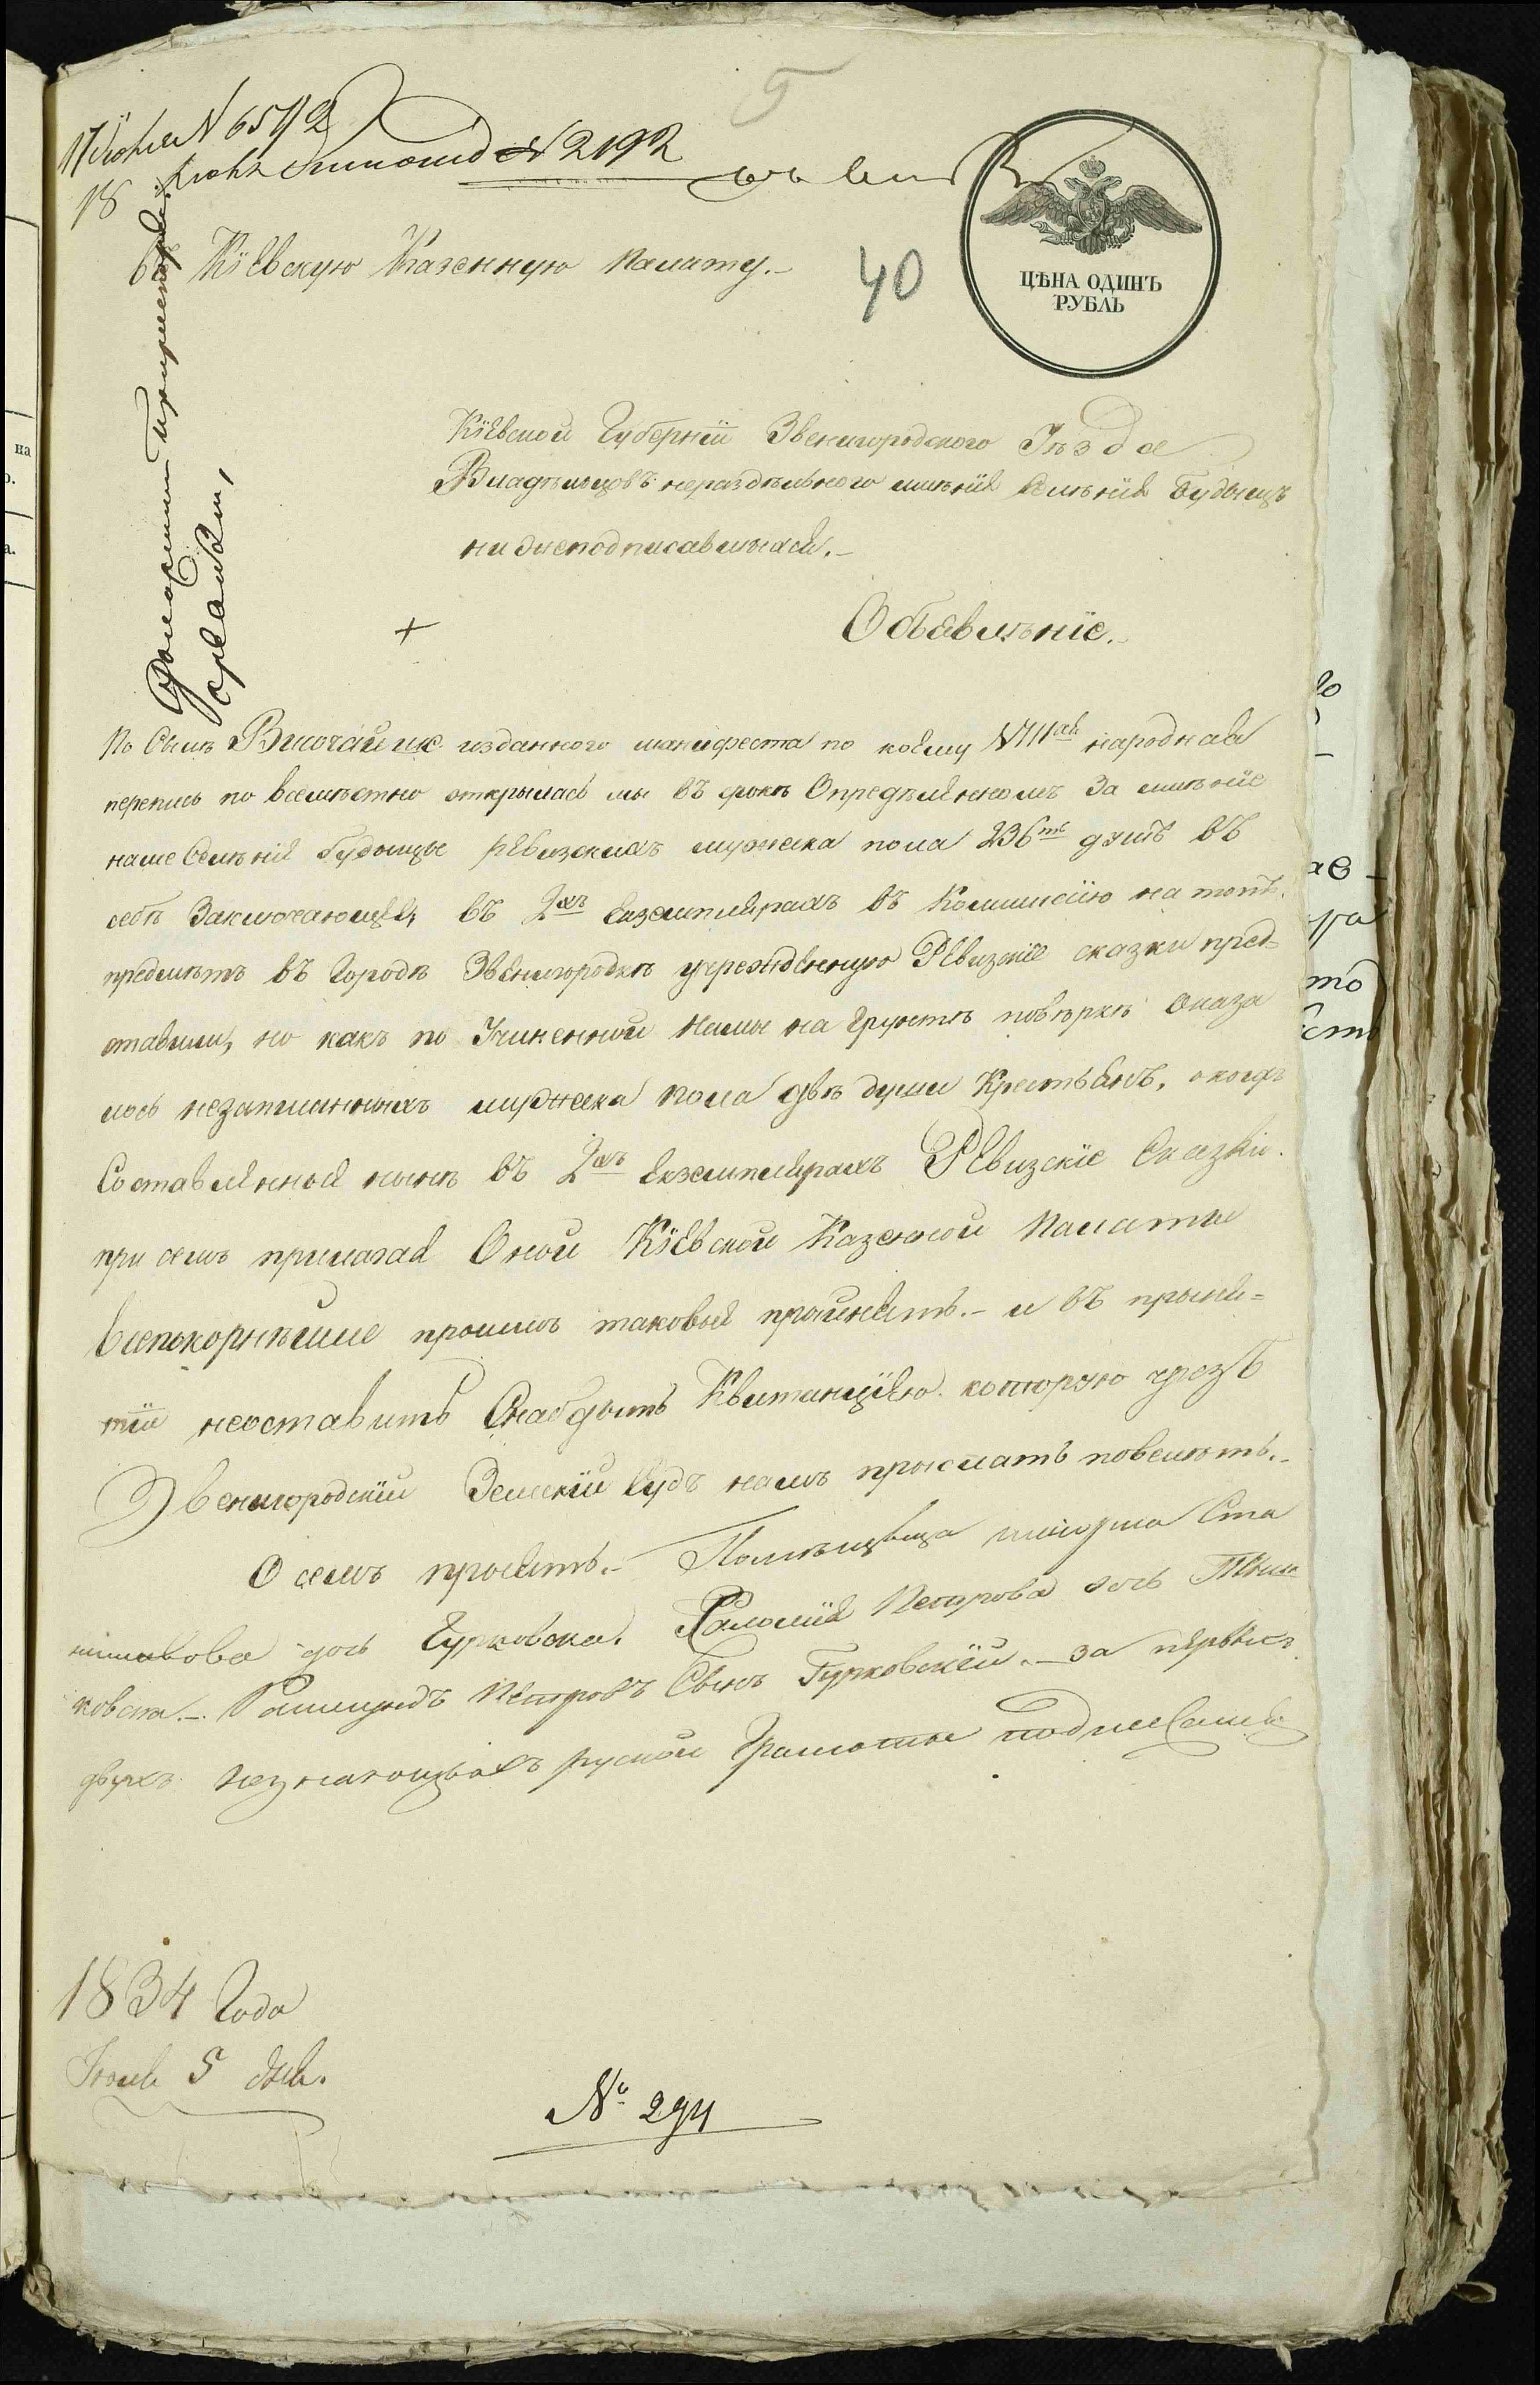 5
17 Июня N 6592
18 N 2192
Въ Кіевскую Казенную Палату.-
40
ЦѢНА ОДИНЪ
РУБЛЬ
Кіевской Губерніи Звенигородского Уѣзда
Владѣльцовъ нераздѣльного имѣнія Селѣнія Будыщъ
нижеподписавшихся.-
Объявлѣніе.
+
По Силѣ Височайше изданного манифеста по коему VIIIая народная
перепись по всемѣстно открылась мы въ срокъ Опредѣленномъ За имѣніе
наше Селѣніе Будыщы Ревизскихъ мужеска пола 236ть душъ въ
себѣ Заключающее, въ 2хъ Екземплярахъ въ Коммисію на тотъ
предмѣтъ въ Городѣ Звенигородкѣ учрежденную Ревизскіе сказки пред=
ставили, но какъ по Учиненной Нами на Грунтѣ повѣркѣ Оказа
лось незаписанныхъ мужеска пола двѣ души Крестьянъ, о коихъ
Составленной нынѣ въ 2хъ Екземплярахъ Ревизскіе Сказки
при семъ прилагая Оной Кіевской Казенной Палаты
Всепокорнѣйше просимъ таковыя принять.- и въ приня=
тіи неоставить Снабдыть Квитанціею которую чрезъ
Звенигородскій Земскій Судъ намъ прислать повелѣть.-
О семъ просятъ.- Помѣщица Ста
нишлавова дочь Гурковска. Саломія Петрова дочь
ковска.- Петровъ Сынъ Гурковскій.- за первыхъ
двухъ незнающыхъ руской Грамоты подписался
1834 Года
Іюня 5 дня.
№ 294